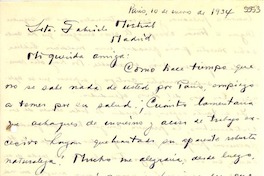 París, 10 de enero de 1934
Srta. Gabriela Mistral
Madrid
Mi querida amiga:
Como hace tiempo que
no se sabe nada de usted por París, empiezo
a temer por su salud. ¡Cuánto lamentaría
que achaques de invierno y acaso de trabajo ex-
cesivo hayan quebrantado su aparente robusta
naturaleza! Mucho me alegraría, desde luego,